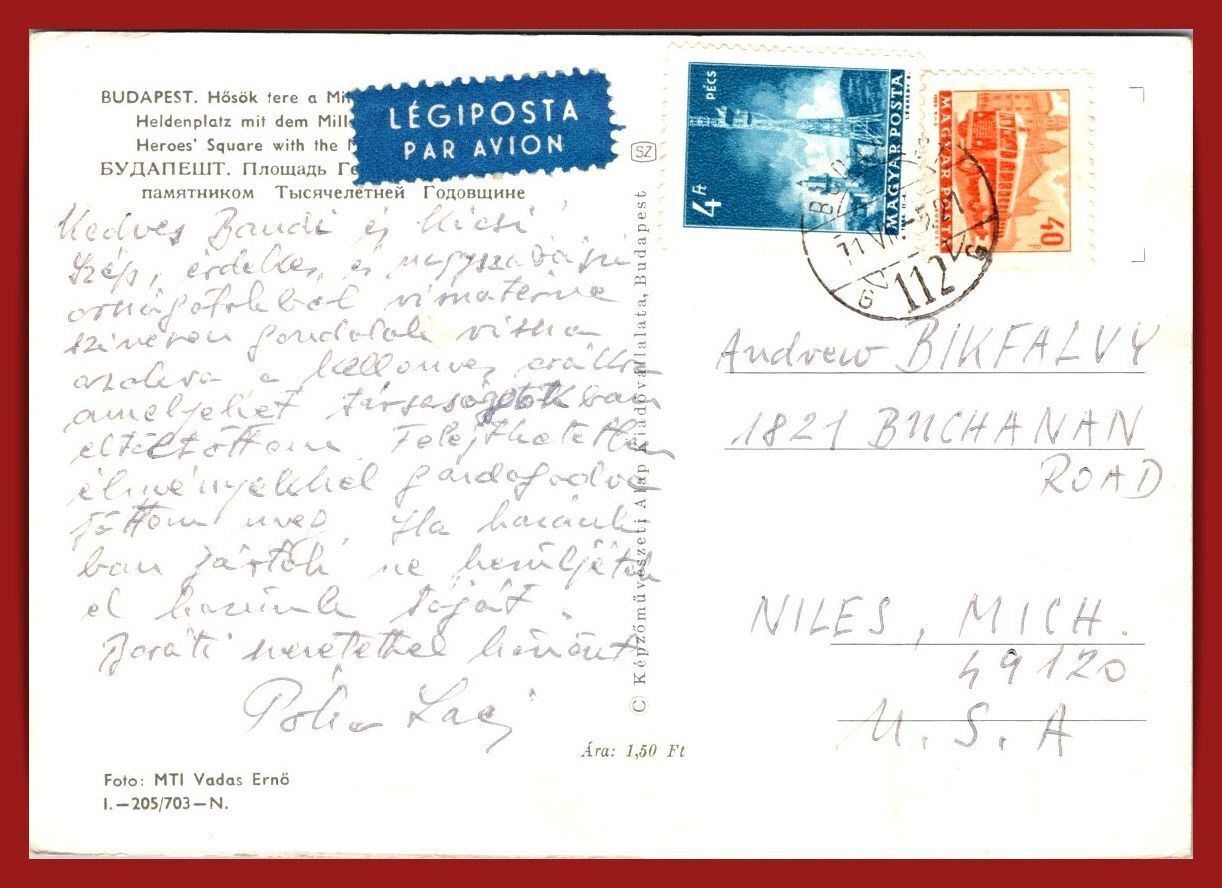 BUDAPEST. Hősök tere a Mil
Heldenplatz mit dem Mill
Heroes' Square with the M
БУДАПЕШТ. Площадь Ге
памятником Тысячелетней Годовщине
LÉGIPOSTA
PAR AVION
Kedves Bandi és Kicsi!
Szép, érdekes, és nagyszabású
országotokból visszatérve
szívesen gondolok vissza
azokra a kellemes órákra
amelyeket társaságotokban
eltöltöttem. Felejthetetlen
élményekkel gazdagodva
jöttem meg. Ha hazánk
ban jártok ne kerüljétek
el hazunk táját.
Baráti szeretettel köszönt
Laci
Foto: MTI Vadas Ernő
I.—205/703—N.
Ára: 1,50 Ft
SZ
© Képzőművészeti Alap Kiadóvállalata, Budapest
4 Ft
PÉCS
MAGYAR POSTA
MAGYAR POSTA
40
112
Andrew BIKFALVY
1821 BUCHANAN
ROAD
NILES, MICH.
49120
U.S.A